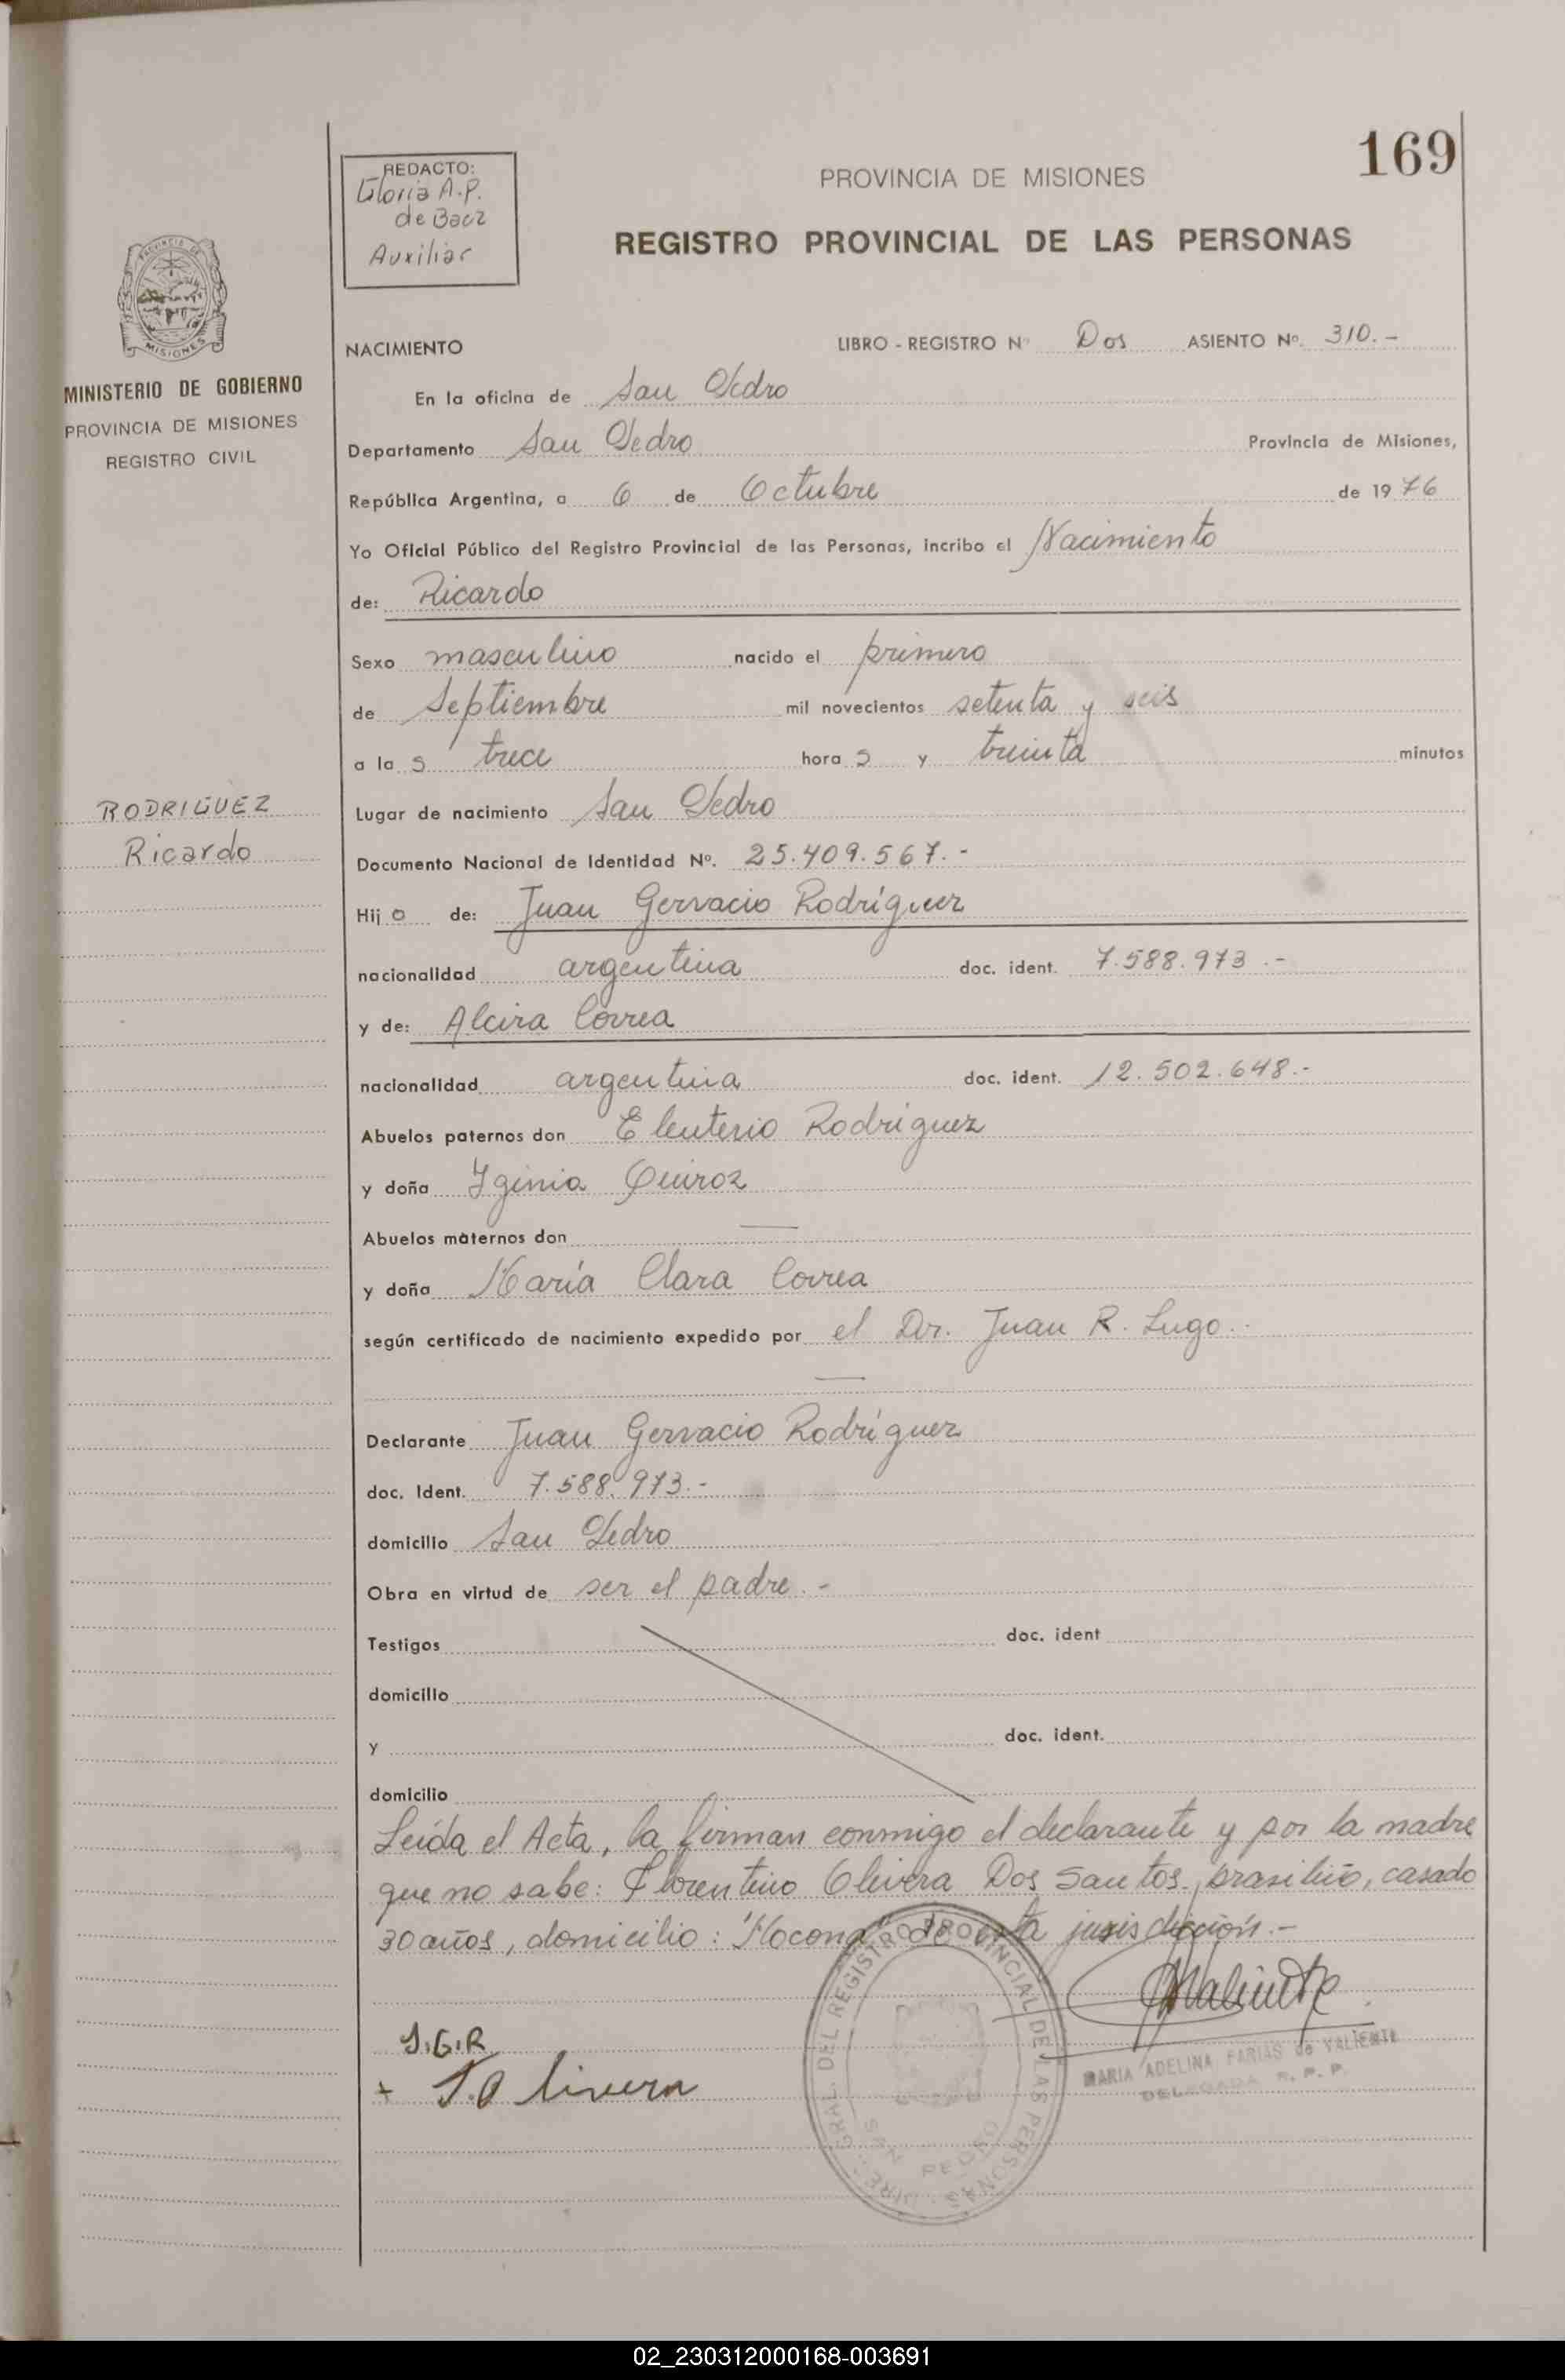 169
REDACTO:
Gloria A.P.
de Baez
Auxiliar
PROVINCIA DE MISIONES
REGISTRO PROVINCIAL DE LAS PERSONAS
MISIONES
MINISTERIO DE GOBIERNO
PROVINCIA DE MISIONES
REGISTRO CIVIL
NACIMIENTO LIBRO - REGISTRO Nº Dos ASIENTO Nº. 310.-
En la oficina de San Pedro
Departamento San Pedro Provincia de Misiones,
República Argentina, a 6 de Octubre de 1976
Yo Oficial Público del Registro Provincial de las Personas, incribo el Nacimiento
de: Ricardo
Sexo masculino nacido el primero
de Septiembre mil novecientos setenta y seis
a la s trece hora s y treinta minutos
RODRIGUEZ
Ricardo
Lugar de nacimiento San Pedro
Documento Nacional de Identidad Nº. 25.409.567.-
Hij o de: Juan Gervacio Rodríguez
nacionalidad argentina doc. ident. 7.588.973.-
y de: Alcira Correa
nacionalidad argentina doc. ident. 12.502.648.-
Abuelos paternos don Eleuterio Rodriguez
y doña Yginia Quiroz
Abuelos maternos don —
y doña María Clara Correa
según certificado de nacimiento expedido por el Dr. Juan R. Lugo.
—
Declarante Juan Gervacio Rodríguez
doc. Ident. 7.588.973.-
domicilio San Pedro
Obra en virtud de ser el padre.-
Testigos doc. ident
domicilio
y doc. ident.
domicilio
Leída el Acta, la firman conmigo el declarante y por la madre
que no sabe: Florentino Olivera Dos Santos, brasileño, casado
30 años, domicilio: "Mocona" de esta jurisdicción.-
J.G.R
MARIA ADELINA FARIAS de VALIENTE
DELEGADA R. P. P.
DIRE. GRAL. DEL REGISTRO PROVINCIAL DE LAS PERSONAS
SAN PEDRO
02_230312000168-003691